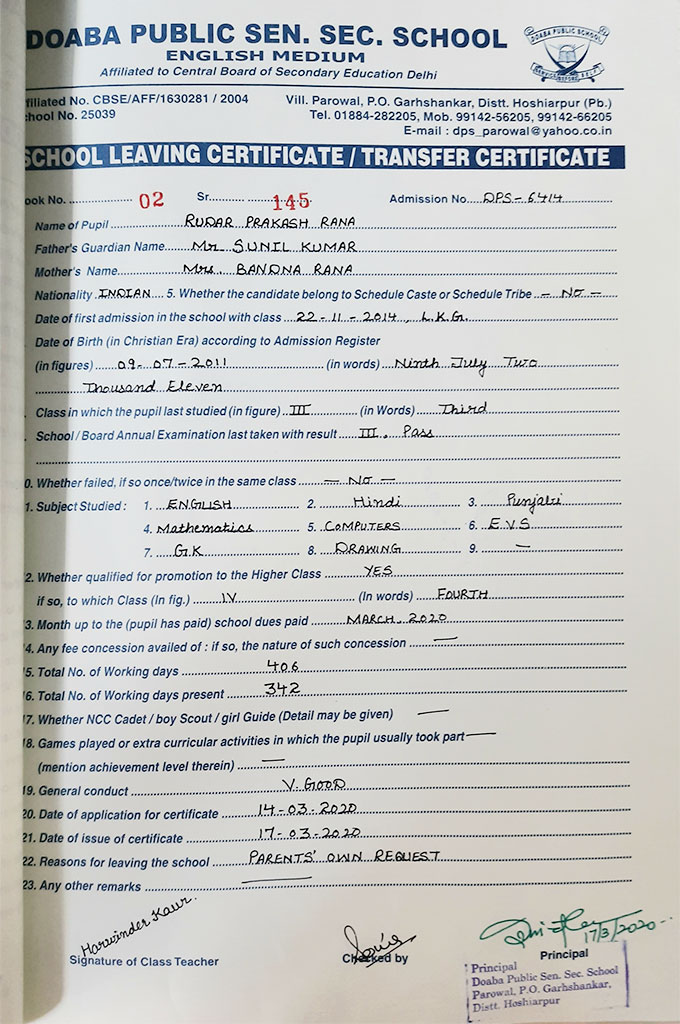 DOABA PUBLIC SEN. SEC. SCHOOL
ENGLISH MEDIUM
Affiliated to Central Board of Secondary Education Delhi
DOABA PUBLIC SCHOOL
ffiliated No. CBSE/AFF/1630281 / 2004
hool No. 25039
Vill. Parowal, P.O. Garhshankar, Distt. Hoshiarpur (Pb.)
Tel. 01884-282205, Mob. 99142-56205, 99142-66205
E-mail : dps_parowal@yahoo.co.in
SCHOOL LEAVING CERTIFICATE / TRANSFER CERTIFICATE
ook No. 02 Sr. 145 Admission No. DPS-6414
Name of Pupil RUDAR PRAKASH RANA
Father's Guardian Name Mr. SUNIL KUMAR
Mother's Name Mrs. BANDNA RANA
Nationality INDIAN 5. Whether the candidate belong to Schedule Caste or Schedule Tribe - No -
Date of first admission in the school with class 22-11-2014, L.K.G.
Date of Birth (in Christian Era) according to Admission Register
(in figures) 09-07-2011 (in words) Ninth July Two
Thousand Eleven
Class in which the pupil last studied (in figure) III (in Words) Third
School / Board Annual Examination last taken with result III, Pass
0. Whether failed, if so once/twice in the same class - No -
1. Subject Studied : 1. ENGLISH 2. Hindi 3. Punjabi
4. Mathematics 5. COMPUTERS 6. EVS
7. G.K 8. DRAWING 9. -
2. Whether qualified for promotion to the Higher Class YES
if so, to which Class (In fig.) IV (In words) FOURTH
3. Month up to the (pupil has paid) school dues paid MARCH, 2020
4. Any fee concession availed of : if so, the nature of such concession -
5. Total No. of Working days 406
16. Total No. of Working days present 342
17. Whether NCC Cadet / boy Scout / girl Guide (Detail may be given) -
18. Games played or extra curricular activities in which the pupil usually took part -
(mention achievement level therein) -
19. General conduct V. GOOD
20. Date of application for certificate 14-03-2020
21. Date of issue of certificate 17-03-2020
22. Reasons for leaving the school PARENTS' OWN REQUEST
23. Any other remarks -
Harwinder Kaur.
17/3/2020
Signature of Class Teacher Checked by Principal
Principal
Doaba Public Sen. Sec. School
Parowal, P.O. Garhshankar,
Distt. Hoshiarpur